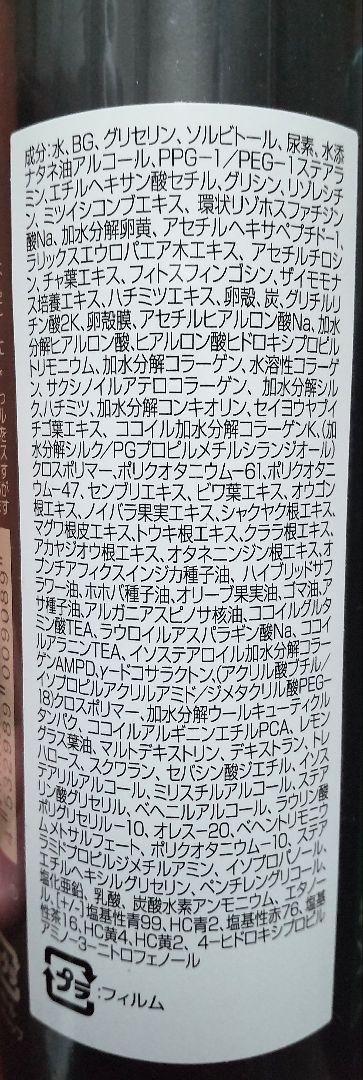 成分:水、BG、グリセリン、ソルビトール、尿素、水添
ナタネ油アルコール、PPG-1/PEG-1ステアラ
ミン、エチルヘキサン酸セチル、グリシン、リゾレシチ
ン、ミツイシコンブエキス、環状リゾホスファチジン
酸Na、加水分解卵黄、アセチルヘキサペプチド-1、
ラリックスエウロパエア木エキス、アセチルチロシ
ン、チャ葉エキス、フィトスフィンゴシン、ザイモモナ
ス培養エキス、ハチミツエキス、卵殻、炭、グリチルリ
チン酸2K、卵殻膜、アセチルヒアルロン酸Na、加水
分解ヒアルロン酸、ヒアルロン酸ヒドロキシプロピル
トリモニウム、加水分解コラーゲン、水溶性コラーゲ
ン、サクシノイルアテロコラーゲン、加水分解シル
ク、ハチミツ、加水分解コンキオリン、セイヨウヤブイ
チゴ葉エキス、ココイル加水分解コラーゲンK、(加
水分解シルク/PGプロピルメチルシランジオール)
クロスポリマー、ポリクオタニウム-61、ポリクオタニ
ウム-47、センブリエキス、ビワ葉エキス、オウゴン
根エキス、ノイバラ果実エキス、シャクヤク根エキス、
マグワ根皮エキス、トウキ根エキス、クララ根エキス、
アカヤジオウ根エキス、オタネニンジン根エキス、オ
プンチアフィクスインジカ種子油、ハイブリッドサフ
ラワー油、ホホバ種子油、オリーブ果実油、ゴマ油、ア
サ種子油、アルガニアスピノサ核油、ココイルグルタ
ミン酸TEA、ラウロイルアスパラギン酸Na、ココイ
ルアラニンTEA、イソステアロイル加水分解コラー
ゲンAMPD、γ-ドコサラクトン、(アクリル酸ブチル/
イソプロピルアクリルアミド/ジメタクリル酸PEG-
18)クロスポリマー、加水分解ウールキューティクル
タンパク、ココイルアルギニンエチルPCA、レモン
グラス葉油、マルトデキストリン、デキストラン、トレ
ハロース、スクワラン、セバシン酸ジエチル、イソス
テアリルアルコール、ミリスチルアルコール、ステア
リン酸グリセリル、ベヘニルアルコール、ラウリン酸
ポリグリセリル-10、オレス-20、ベヘントリモニウ
ムメトサルフェート、ポリクオタニウム-10、ステア
ラミドプロピルジメチルアミン、イソプロパノール、
エチルヘキシルグリセリン、ペンチレングリコール、
塩化亜鉛、乳酸、炭酸水素アンモニウム、エタノー
ル、[+/-]塩基性青99、HC青2、塩基性赤76、塩基
性茶16、HC黄4、HC黄2、4-ヒドロキシプロピル
アミノ-3-ニトロフェノール
プラ
:フィルム